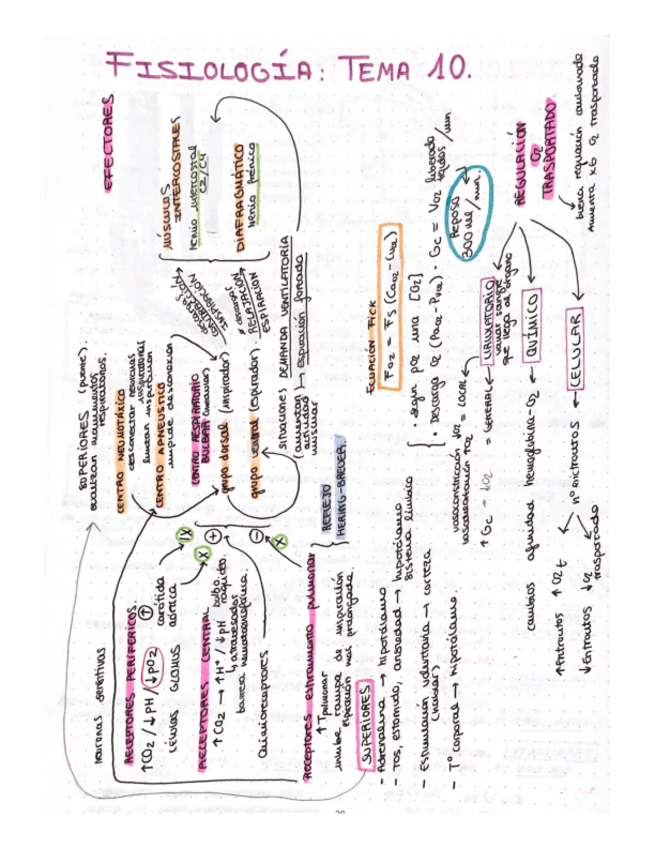 FISIOLOGÍA: TEMA 10.
EFECTORES
MÚSCULOS
INTERCOSTALES
nervio intercostal
C2/C4
DIAFRAGMÁTICO
nervio frénico
SUPERIORES (puente).
movimientos
respiratorios.
CENTRO NEUMOTÁXICO
desconectar neuronas
inspiradoras
limitan inspiración
CENTRO APNEUSTICO
impide desconexión
CENTRO RESPIRATORIO
BULBAR
grupo dorsal (inspirador)
grupo ventral (espirador).
INSPIRACIÓN
RELAJACIÓN
ESPIRACIÓN
SITUACIONES DEMANDA VENTILATORIA
(aumentan → espiración forzada
actividad
muscular
neuronas sensitivas
RECEPTORES PERIFÉRICOS
↑CO2 / ↓PH / ↓PO2
carotídeo
aórtico
CÉLULAS GLOMUS
IX
X
RECEPTORES CENTRAL
↑CO2 → ↑H+ / ↓pH bulbo
y atravesadas
barrera hematoencefálica
Quimiorreceptores
+
−
X
Receptores estiramiento pulmonar
↑T pulmonar
inhibe rampa de inspiración
Espiración más prolongada.
REFLEJO
HERING-BREUER.
SUPERIORES
- Adrenalina → hipotálamo
- Tos, estornudo, ansiedad → hipotálamo
sistema límbico
- Estimulación voluntaria → corteza
- Tº corporal → hipotálamo.
ECUACIÓN FICK
FO2 = FS (CaO2 - CvO2)
· según pO2 una [O2]
· Descarga O2 (PaO2 - PvO2) · Gc = VO2 liberado
tejidos/min
Reposo
300 ml/min.
REGULACIÓN
O2
TRANSPORTADO.
buena regulación
Aumenta x6 O2 trasportado
CIRCULATORIO
variar sangre
que llega al órgano
vasoconstricción ↓O2 = LOCAL
vasodilatación ↑O2
↑Gc - ↓O2 = GENERAL
QUÍMICO
cambios afinidad hemoglobina-O2
CELULAR
nº eritrocitos
↑Eritrocitos ↑O2 t
↓Eritrocitos ↓O2
trasportado